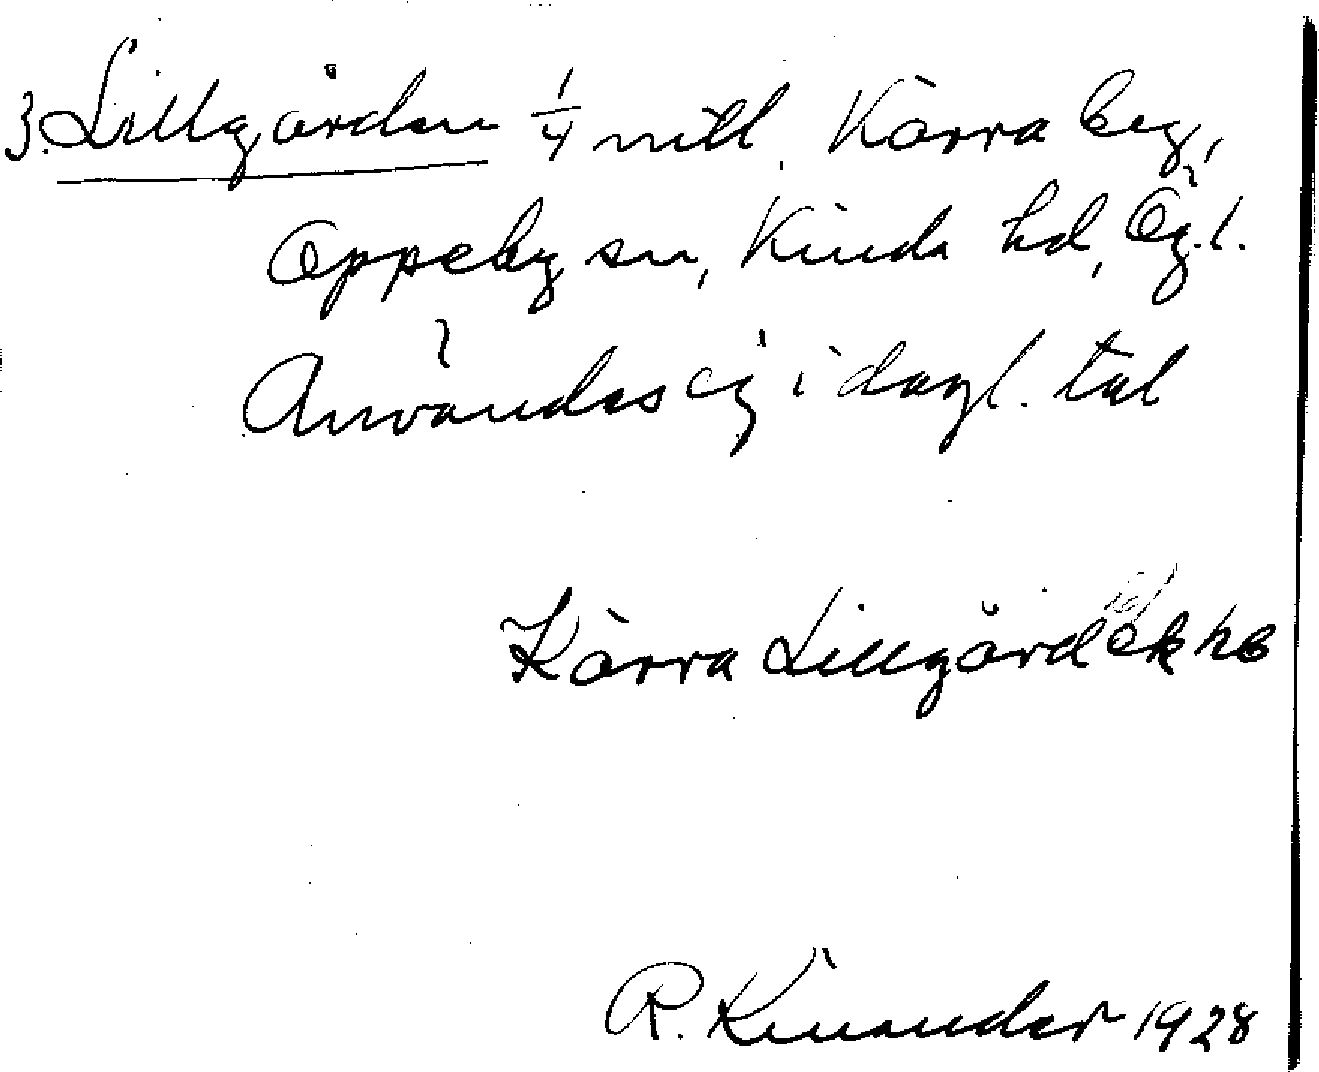 3. Lillgården 1/4 mtl. Kärra by,
Oppeby sn, Kinda hd, Ög.l.
Användes ej i dagl. tal
Kärra Lillgård ek hb
R. Kinander 1928